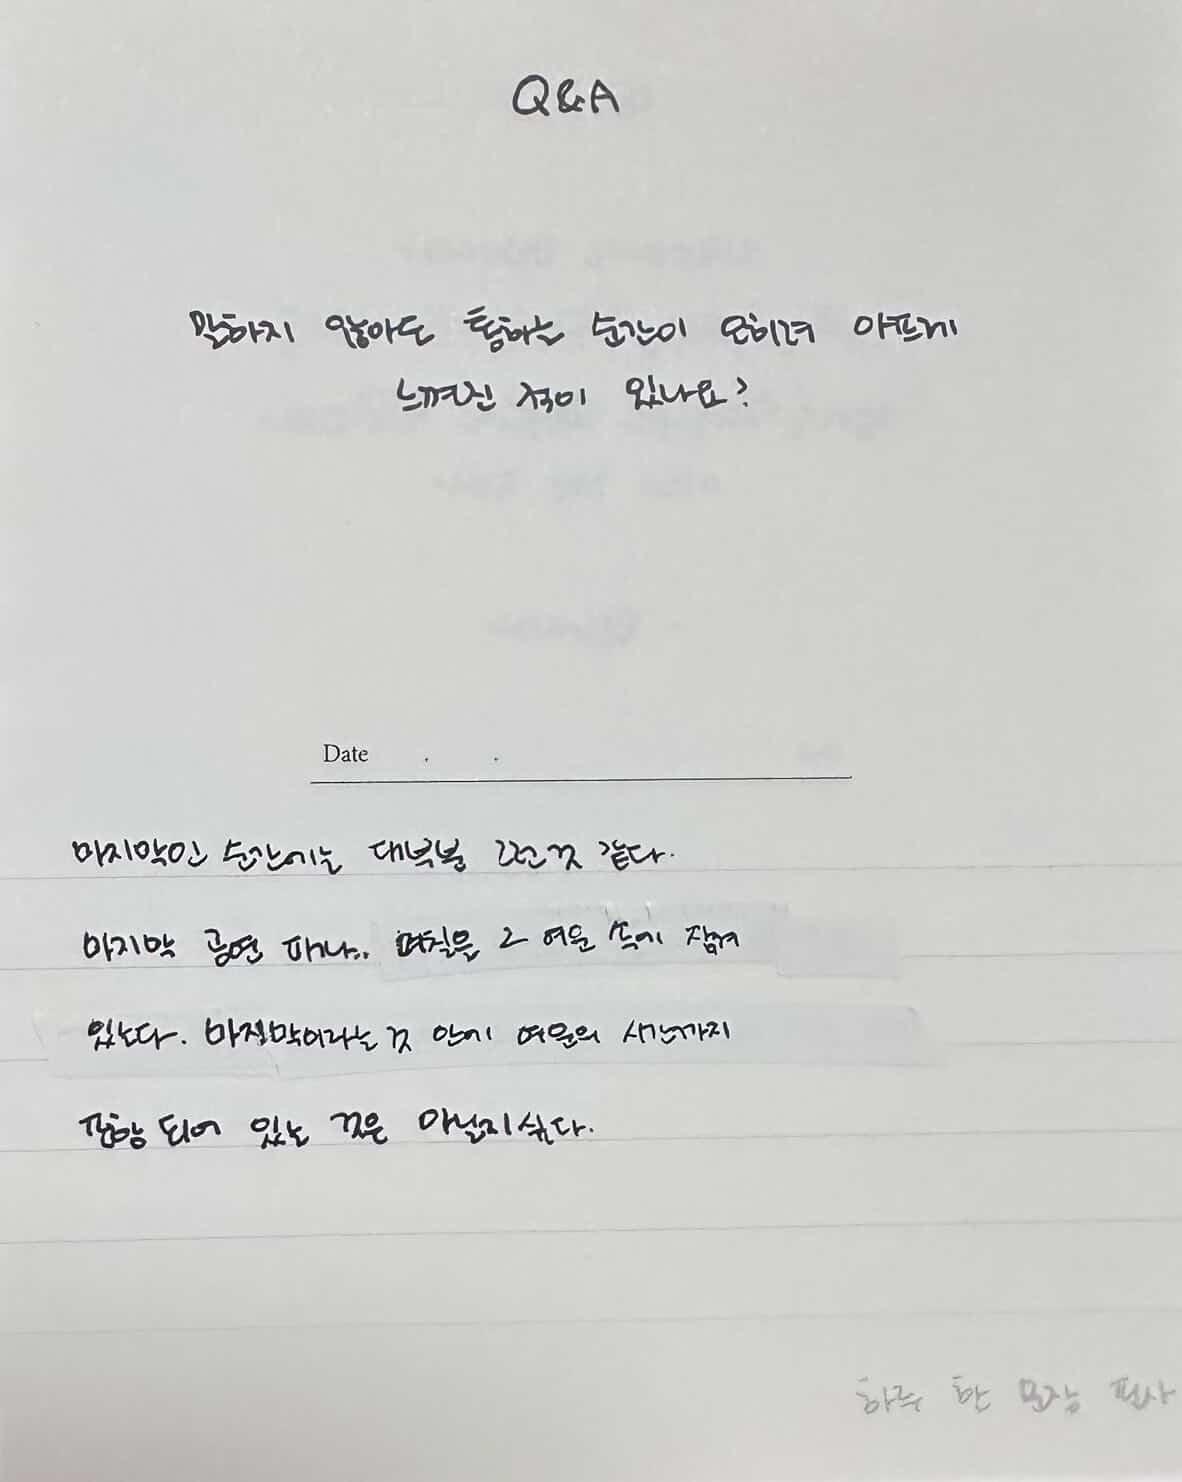 Q&A
말하지 않아도 통하는 순간이 오히려 아프게
느껴진 적이 있나요?
Date . .
마지막인 순간에는 대부분 그런것 같다.
마지막 공연 때나.. 며칠을 그 여운 속에 잠겨
있는다. 마지막이라는 것 안에 여운의 시간까지
포함 되어 있는 것은 아닐지싶다.
하루 한 문장 필사